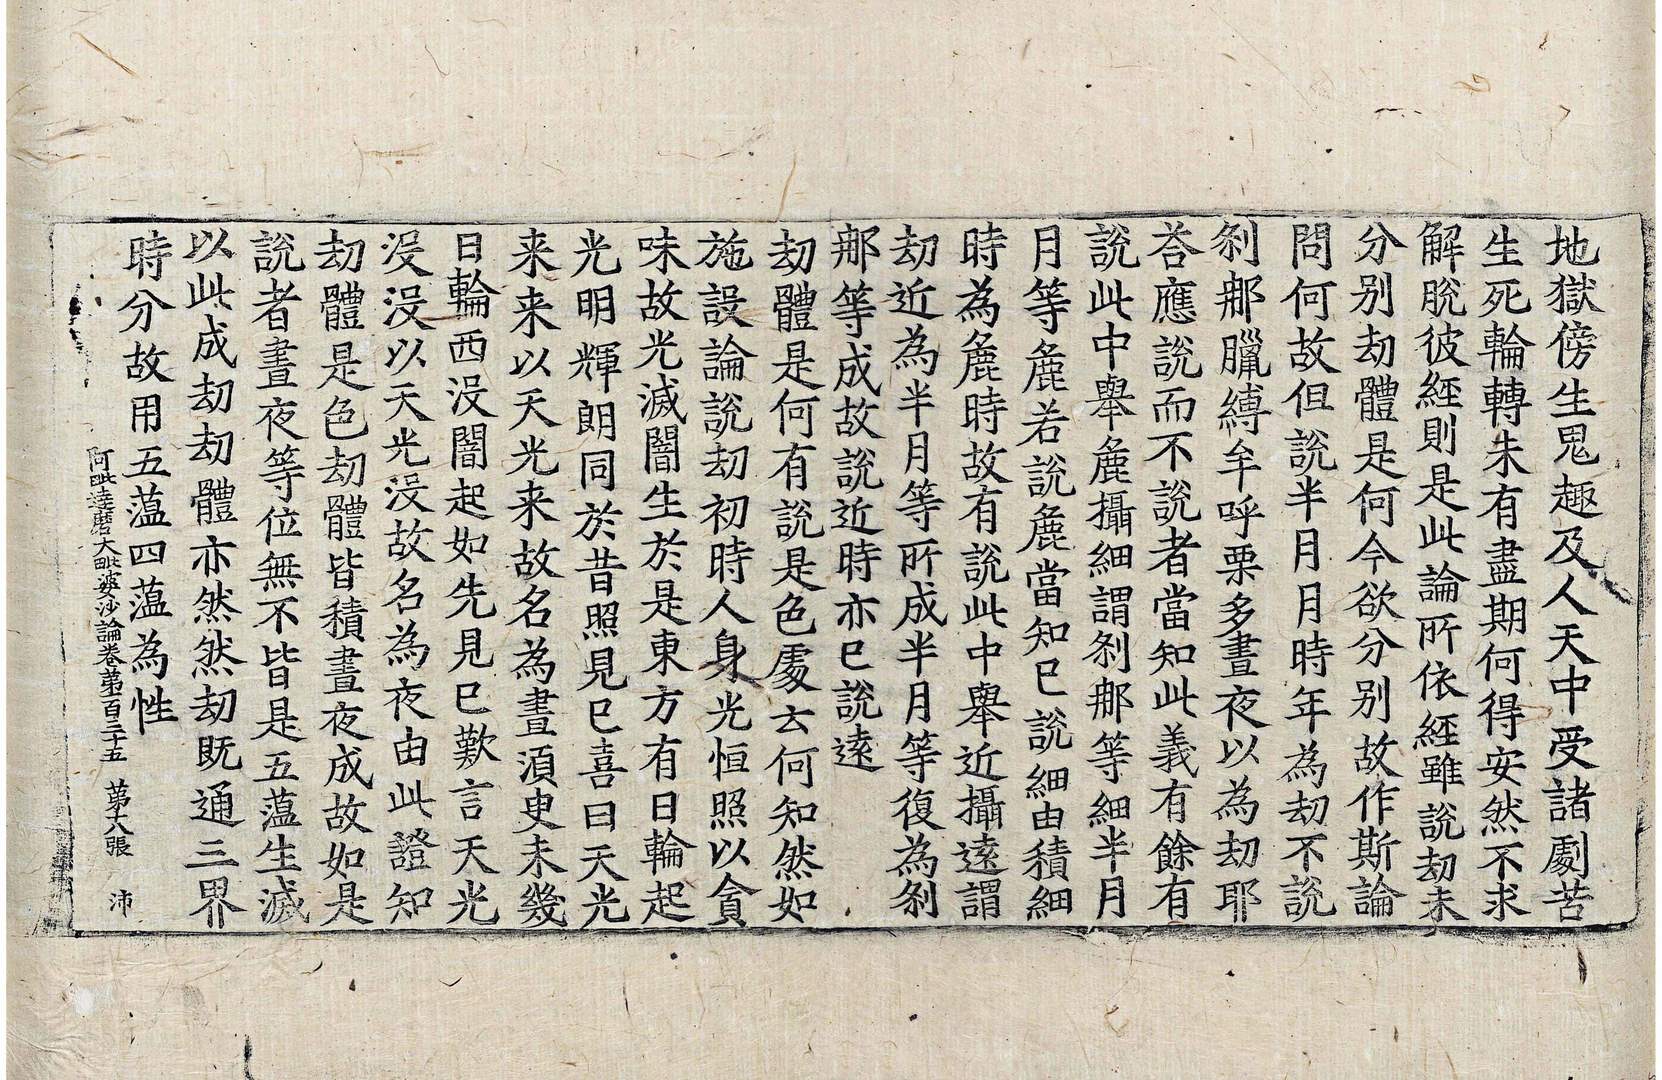 地獄傍生鬼趣及人天中受諸劇苦
生死輪轉未有盡期何得安然不求
解脫彼經則是此論所依經雖說劫未
分別劫體是何今欲分別故作斯論
問何故但說半月月時年為劫不說
刹那臘縛牟呼栗多晝夜以為劫耶
荅應說而不說者當知此義有餘有
說此中舉麁攝細謂刹那等細半月
月等麁若說麁當知已說細由積細
時為麁時故有說此中舉近攝遠謂
劫近為半月等所成半月等復為刹
那等成故說近時亦已說遠
劫體是何有說是色處云何知然如
施設論說劫初時人身光恒照以貪
味故光滅闇生於是東方有日輪起
光明輝朗同於昔照見已喜曰天光
来来以天光来故名為晝湏史未幾
日輪西沒闇起如先見已歎言天光
沒沒以天光沒故名為夜由此證知
劫體是色劫體皆積晝夜成故如是
說者晝夜等位無不皆是五蕰生滅
以此成劫劫體亦然然劫既通三界
時分故用五蕰四蕰為性
阿毗達磨大毗婆沙論卷苐百三十五 苐十八張 沛